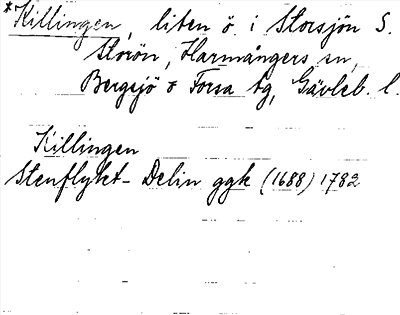 *Killingen, liten ö i Storsjön S.
Storön, Harmångers sn,
Bergsjö o Forsa tg, Gävleb. l.
Killingen
Stenflykt - Delin ggk (1688) 1782